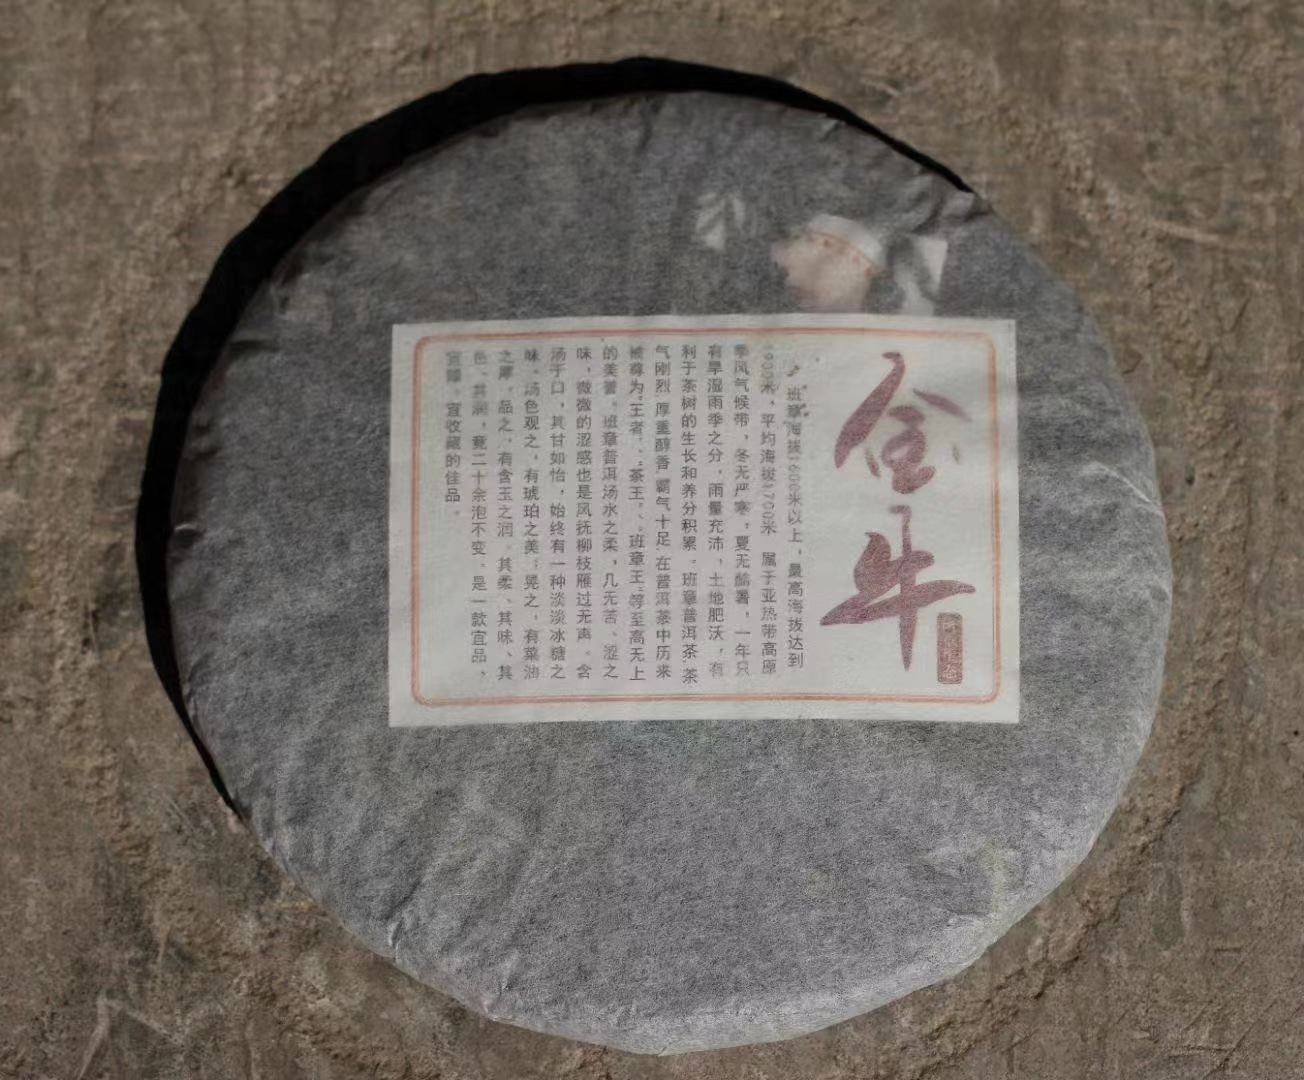 金牛
班章海拔1600米以上，最高海拔达到
1900米，平均海拔1700米 属于亚热带高原
季风气候带，冬无严寒，夏无酷暑，一年只
有旱湿雨季之分，雨量充沛，土地肥沃，有
利于茶树的生长和养分积累。班章普洱茶 茶
气刚烈 厚重醇香 霸气十足 在普洱茶中历来
被尊为"王者"、"茶王"、"班章王"等至高无上
的美誉。班章普洱汤水之柔，几无苦、涩之
味，微微的涩感也是风抚柳枝雁过无声。含
汤于口，其甘如怡，始终有一种淡淡冰糖之
味。汤色观之，有琥珀之美；晃之，有菜油
之厚。品之，有含玉之润。其柔、其味、其
色、其润，竟二十余泡不变。是一款宜品，
宜收藏的佳品。